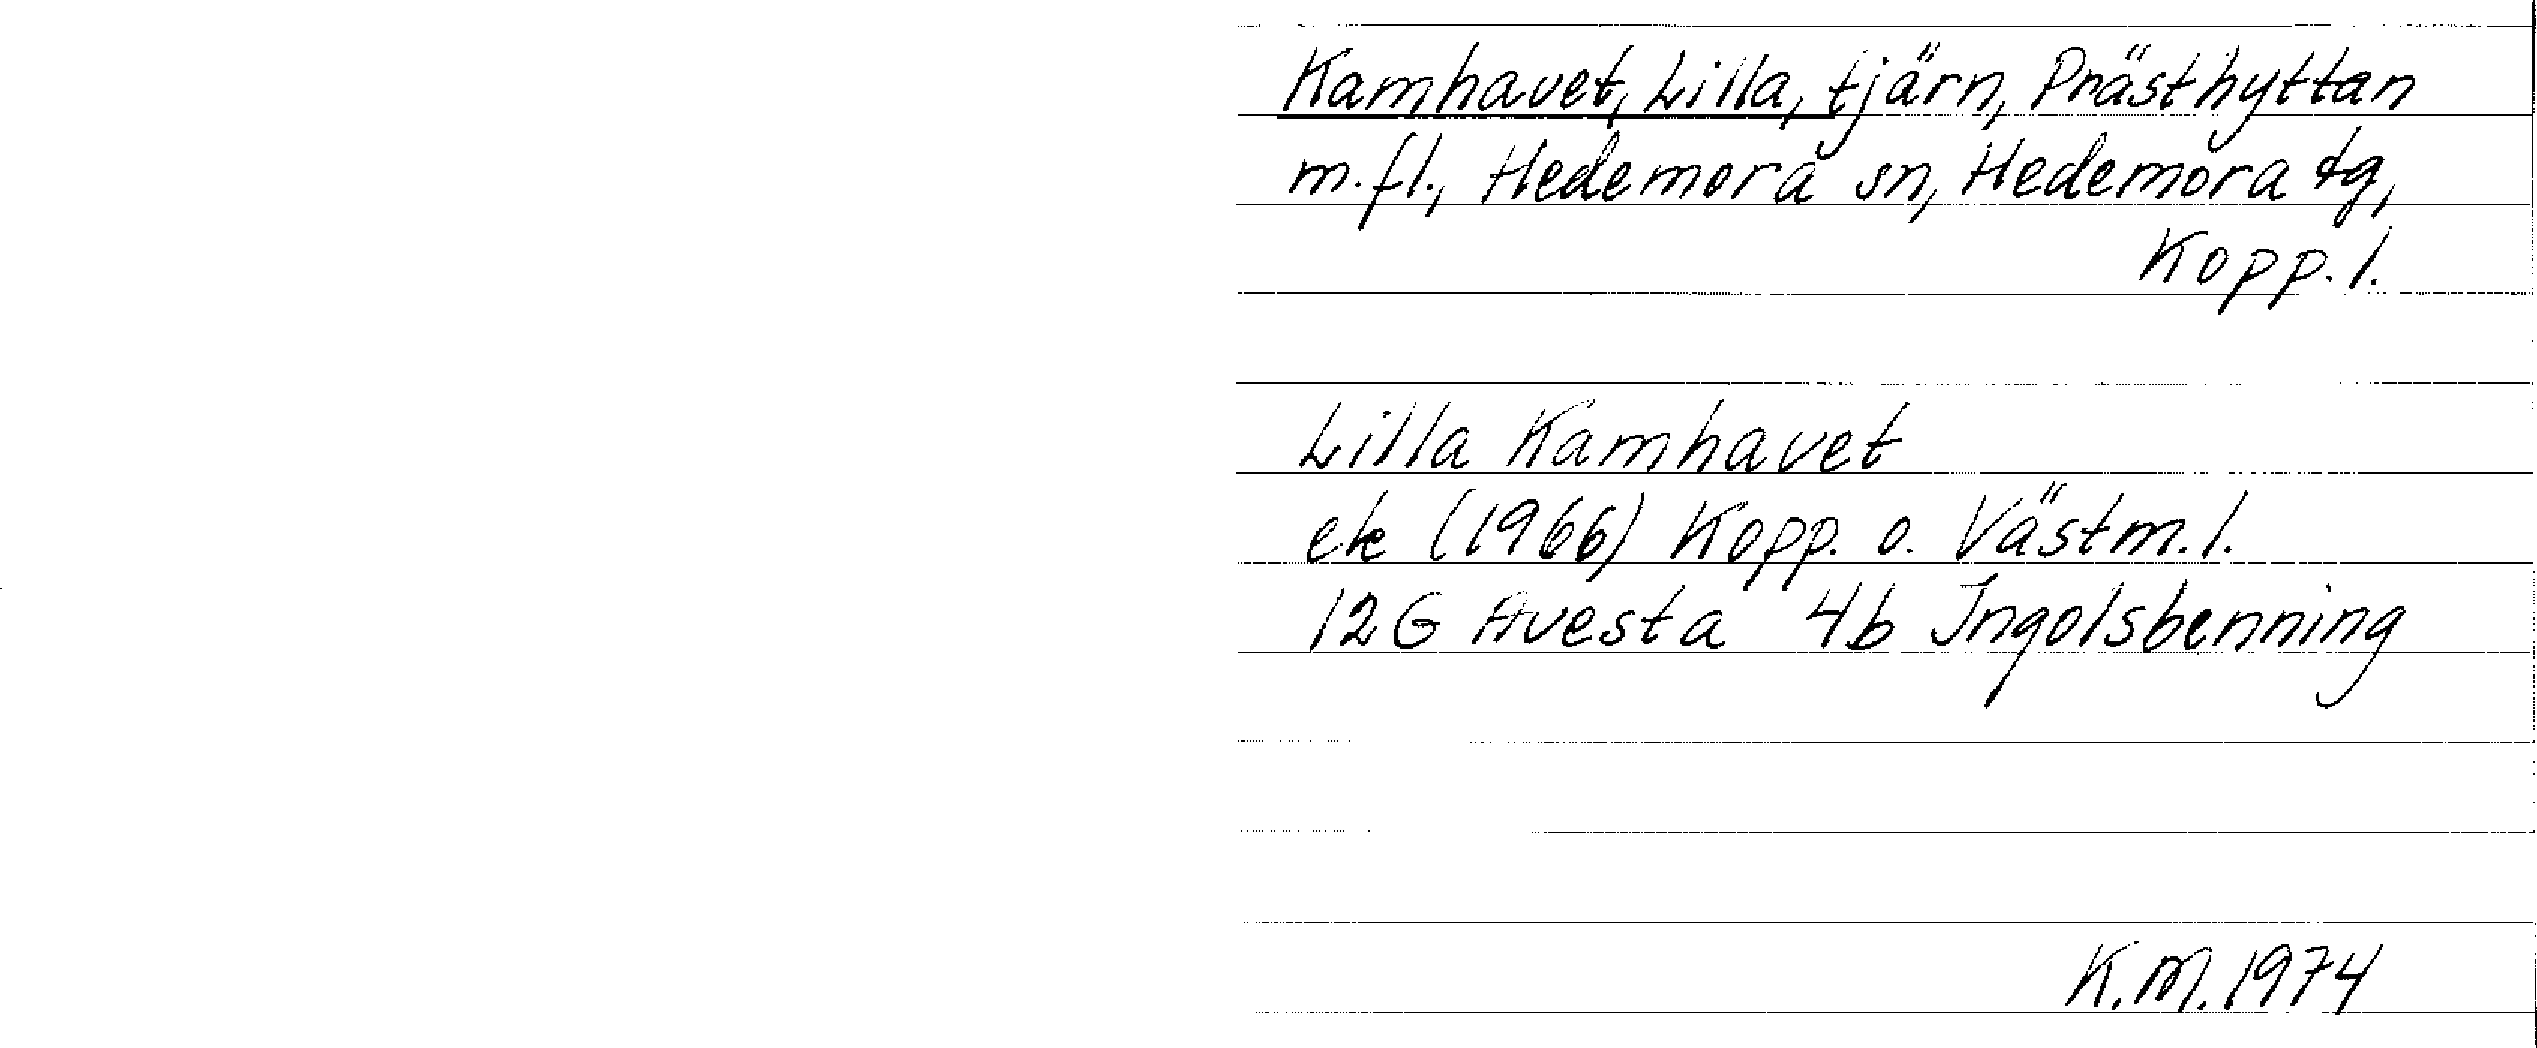 Kamhavet, Lilla, tjärn, Prästhyttan
m.fl., Hedemora sn, Hedemora tg,
Kopp. l.
Lilla Kamhavet
ek (1966) Kopp. o. Västm. l.
12G Avesta 4b Ingolsbenning
K.M. 1974